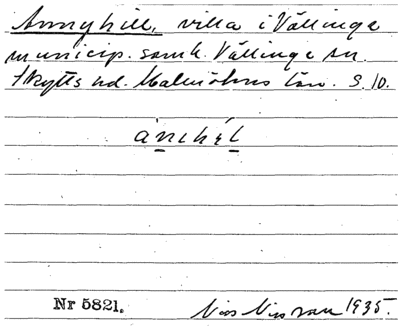 Annyhill, villa i Vällinge
municip. samh. Vällinge sn.
Skytts hd. Malmöhus län. S. 10.
ánɩhɛ́l
Nr 5821.
Nils Nilsson 1935.